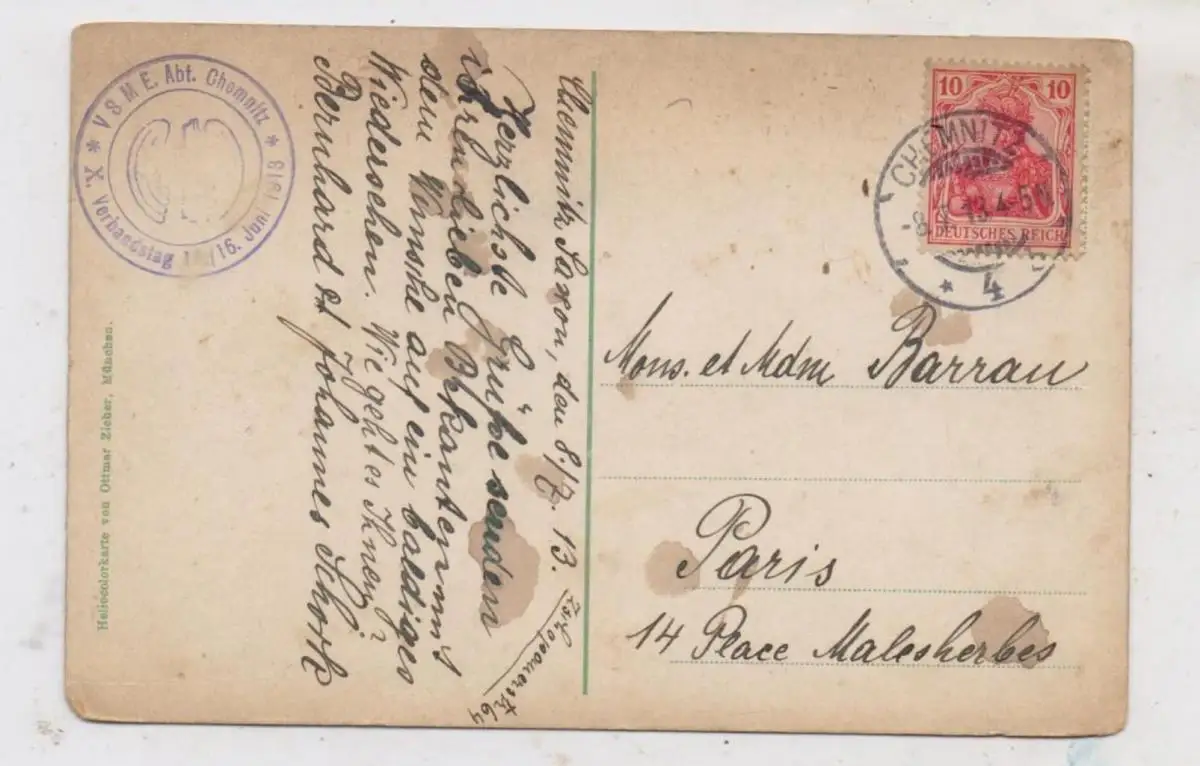 * V S M E. Abt. Chemnitz *
X. Verbandstag /16. Juni 1913
Chemnitz Saxon, den 8./7. 13.
Herzlichste Grüße senden
ihren lieben Bekanten mit
dem Wunsche auf ein baldiges
Wiedersehen. Wie geht es Ihnen?
Bernhard et Johannes Schork
Zschopauerstr 64
Heliocolorkarte von Ottmar Zieher, München.
10 10
DEUTSCHES REICH
CHEMNITZ
-8. 13.4-5N
* 4
Mons. et Mdm Barrau
Paris
14 Place Malesherbes